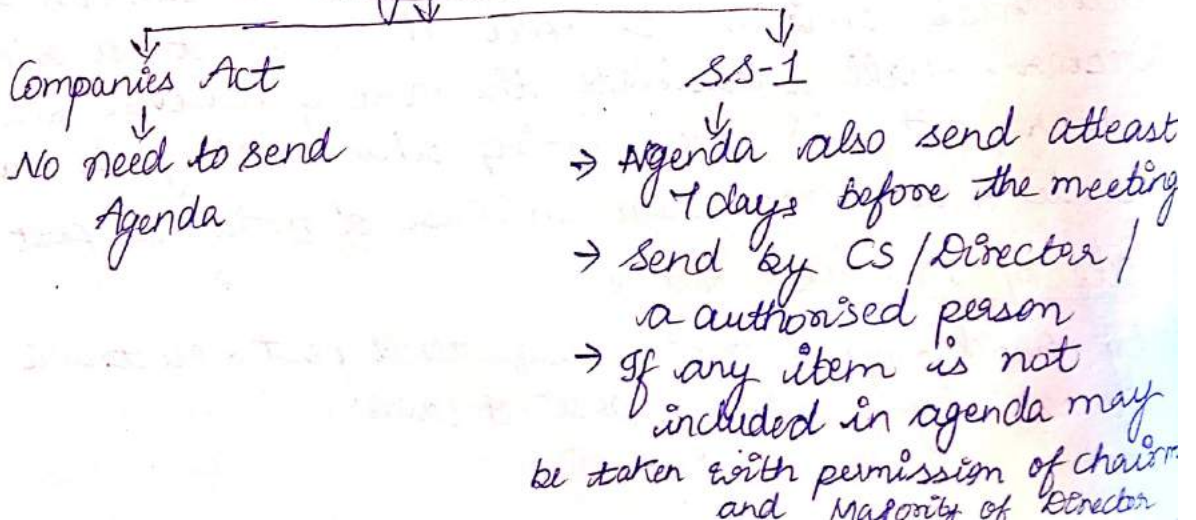 Companies Act
No need to send
Agenda
SS-1
→ Agenda also send atleast
7 days before the meeting
→ Send by CS / Director /
a authorised person
→ If any item is not
included in agenda may
be taken with permission of chairm
and Majority of Director